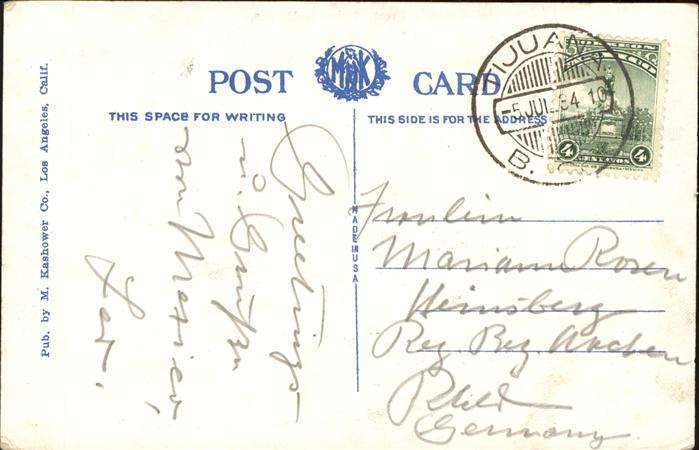 POST CARD
M K
THIS SPACE FOR WRITING
THIS SIDE IS FOR THE ADDRESS
Pub. by M. Kashower Co., Los Angeles, Calif.
MADE IN USA
TIJUANA
-5 JUL 34 10
B.
4 4
CENTAVOS
Greetings
u. Grüße
von Mexico,
Fräulein
Mariann Rosen
Heinsberg
Reg Bez Aachen
Rhld
Germany